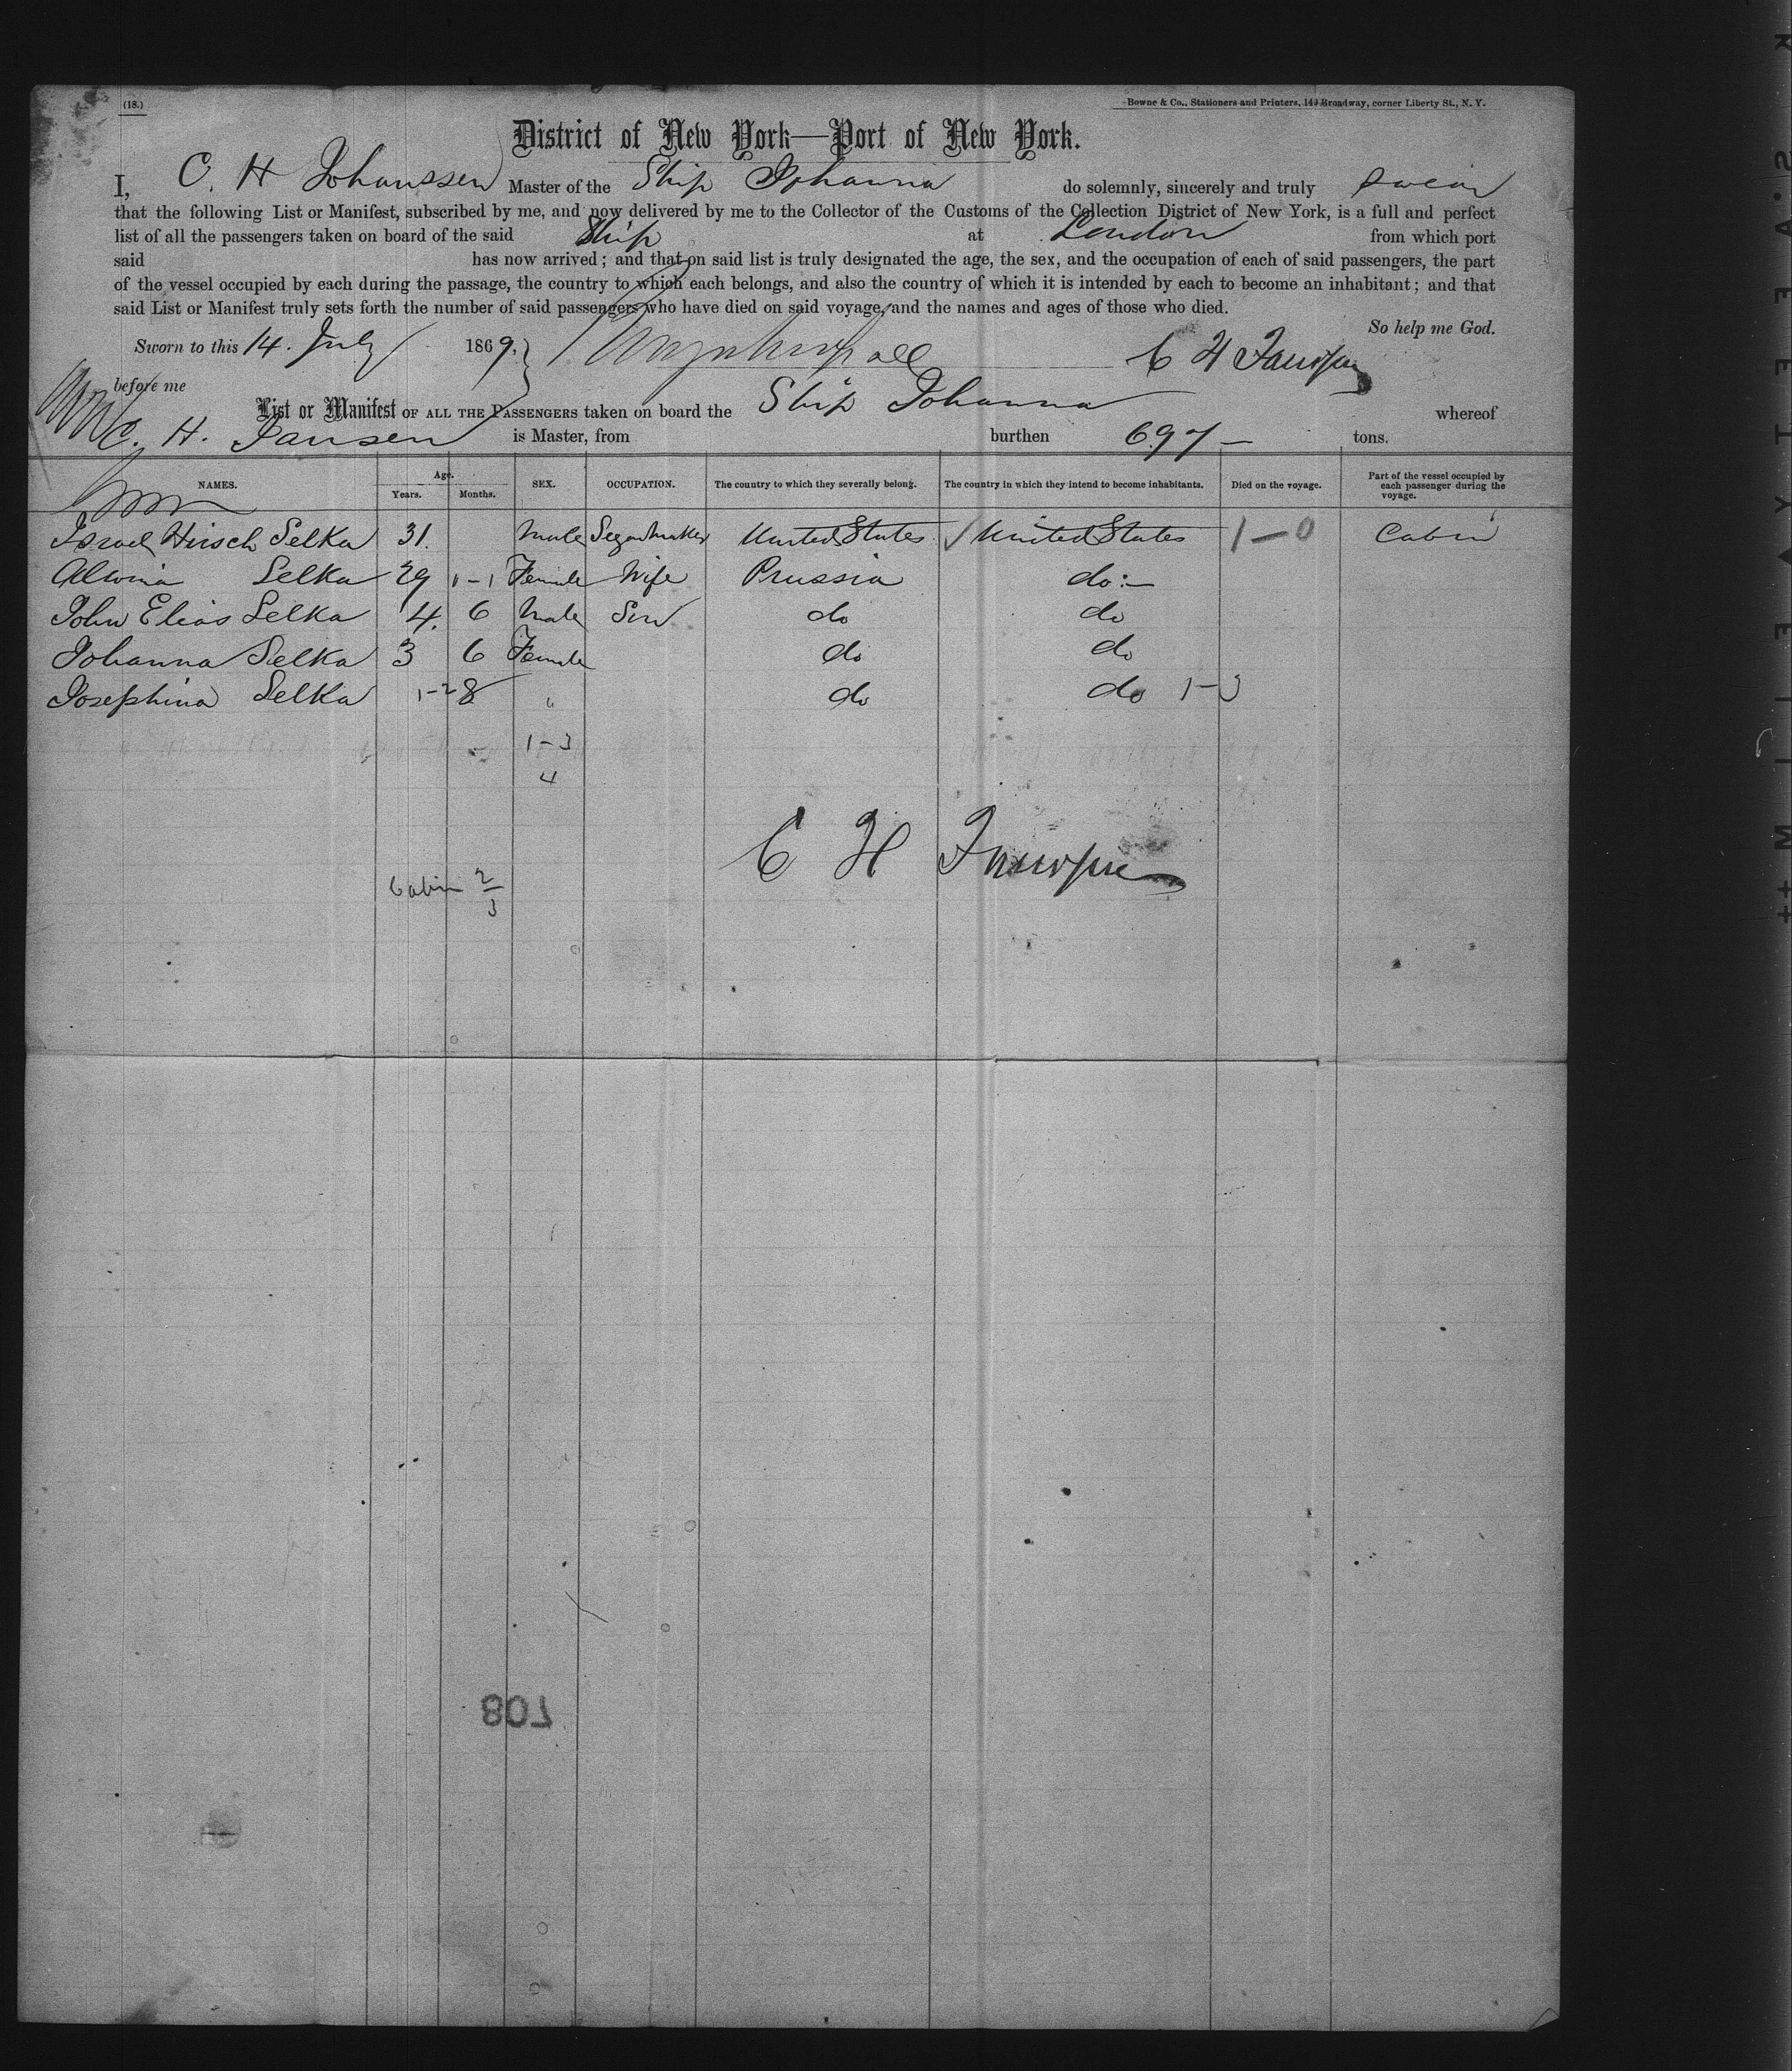 (18.)
Bowne & Co., Stationers and Printers, 149 Broadway, corner Liberty St., N. Y.
District of New York—Port of New York.
I, C. H Johanssen Master of the Ship Johanna do solemnly, sincerely and truly swear
that the following List or Manifest, subscribed by me, and now delivered by me to the Collector of the Customs of the Collection District of New York, is a full and perfect
list of all the passengers taken on board of the said Ship at London from which port
said has now arrived; and that on said list is truly designated the age, the sex, and the occupation of each of said passengers, the part
of the vessel occupied by each during the passage, the country to which each belongs, and also the country of which it is intended by each to become an inhabitant; and that
said List or Manifest truly sets forth the number of said passengers who have died on said voyage, and the names and ages of those who died.
So help me God.
Sworn to this 14. July 1869. C H Jansen
before me
List or Manifest OF ALL THE PASSENGERS taken on board the Ship Johanna whereof
C. H. Jansen is Master, from burthen 697 — tons.
NAMES. Age. Years. Months. SEX. OCCUPATION. The country to which they severally belong. The country in which they intend to become inhabitants. Died on the voyage. Part of the vessel occupied by each passenger during the voyage.
Israel Hirsch Selka 31. Male Segarmaker United States / United States 1—0 Cabin
Alwina Selka 29 1-1 Female Wife Prussia do:—
John Elias Selka 4. 6 Male Son do do
Johanna Selka 3 6 Female do do
Josephina Selka 1-2 8 " do do 1-3
1-3
4
C H Jansen
Cabin 2
3
708